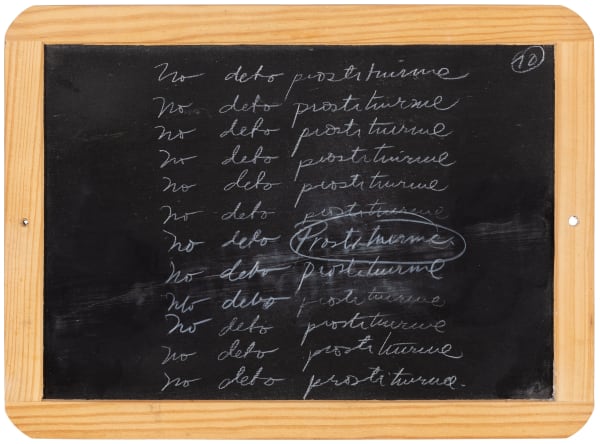 10
no debo prostituirme
no debo prostiturme
no debo prostiturme
no debo prostituirme
no debo prostiturme
no debo prostiturme
no debo Prostituirme.
no debo prostiturme
no debo prostiturme
no debo prostiturme
no debo prostiturme
no debo prostiturme.